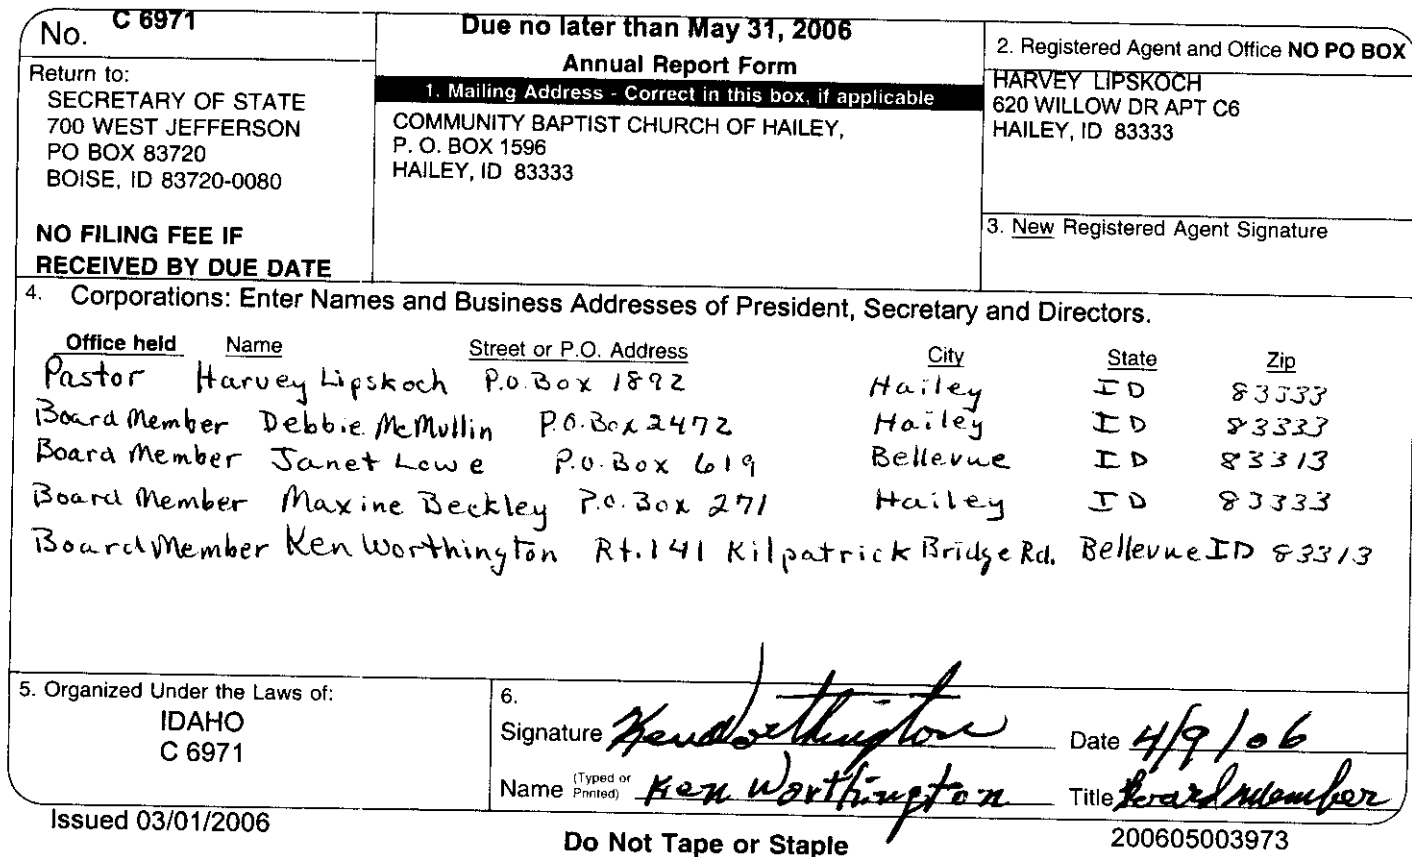 No. C 6971
Return to:
SECRETARY OF STATE
700 WEST JEFFERSON
PO BOX 83720
BOISE, ID 83720-0080
NO FILING FEE IF
RECEIVED BY DUE DATE
Due no later than May 31, 2006
Annual Report Form
1. Mailing Address - Correct in this box, if applicable
COMMUNITY BAPTIST CHURCH OF HAILEY,
P. O. BOX 1596
HAILEY, ID 83333
2. Registered Agent and Office NO PO BOX
HARVEY LIPSKOCH
620 WILLOW DR APT C6
HAILEY, ID 83333
3. New Registered Agent Signature
4. Corporations: Enter Names and Business Addresses of President, Secretary and Directors.
Office held Name Street or P.O. Address City State Zip
Pastor Harvey Lipskoch P.O. Box 1892 Hailey ID 83333
Board Member Debbie McMullin P.O. Box 2472 Hailey ID 83333
Board Member Janet Lowe P.O. Box 619 Bellevue ID 83313
Board Member Maxine Beckley P.O. Box 271 Hailey ID 83333
Board Member Ken Worthington Rt. 141 Kilpatrick Bridge Rd. Bellevue ID 83313
5. Organized Under the Laws of:
IDAHO
C 6971
6.
Signature Ken Worthington Date 4/9/06
Name (Typed or Printed) Ken Worthington Title Board member
Issued 03/01/2006
Do Not Tape or Staple
200605003973